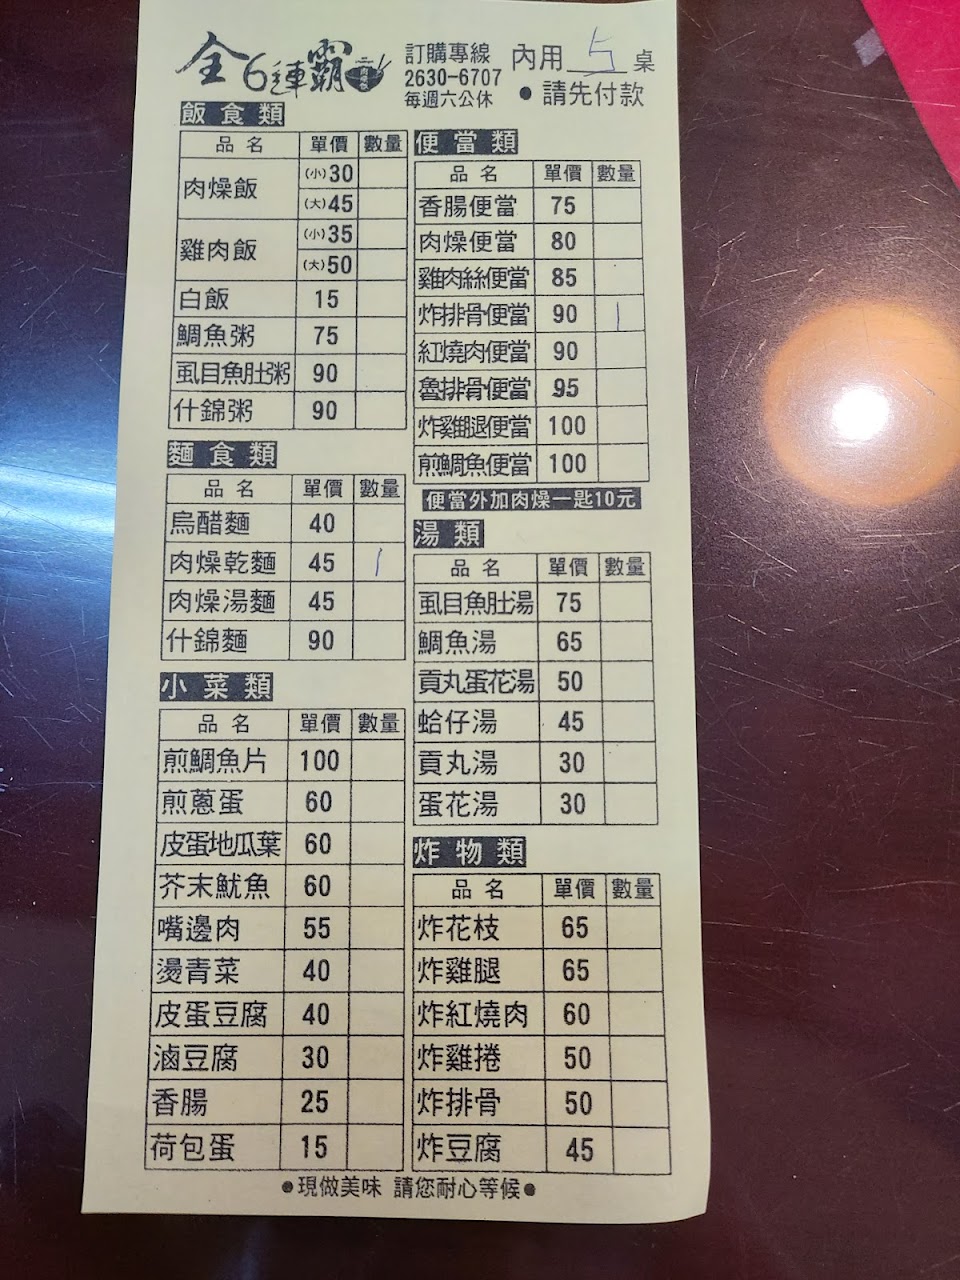 全6連霸
訂購專線
2630-6707
每週六公休
內用 5 桌
●請先付款
飯食類
品名 單價 數量
肉燥飯 (小)30
(大)45
雞肉飯 (小)35
(大)50
白飯 15
鯛魚粥 75
虱目魚肚粥 90
什錦粥 90
麵食類
品名 單價 數量
烏醋麵 40
肉燥乾麵 45 1
肉燥湯麵 45
什錦麵 90
小菜類
品名 單價 數量
煎鯛魚片 100
煎蔥蛋 60
皮蛋地瓜葉 60
芥末魷魚 60
嘴邊肉 55
燙青菜 40
皮蛋豆腐 40
滷豆腐 30
香腸 25
荷包蛋 15
便當類
品名 單價 數量
香腸便當 75
肉燥便當 80
雞肉絲便當 85
炸排骨便當 90 1
紅燒肉便當 90
魯排骨便當 95
炸雞腿便當 100
煎鯛魚便當 100
便當外加肉燥一匙10元
湯類
品名 單價 數量
虱目魚肚湯 75
鯛魚湯 65
貢丸蛋花湯 50
蛤仔湯 45
貢丸湯 30
蛋花湯 30
炸物類
品名 單價 數量
炸花枝 65
炸雞腿 65
炸紅燒肉 60
炸雞捲 50
炸排骨 50
炸豆腐 45
●現做美味 請您耐心等候●